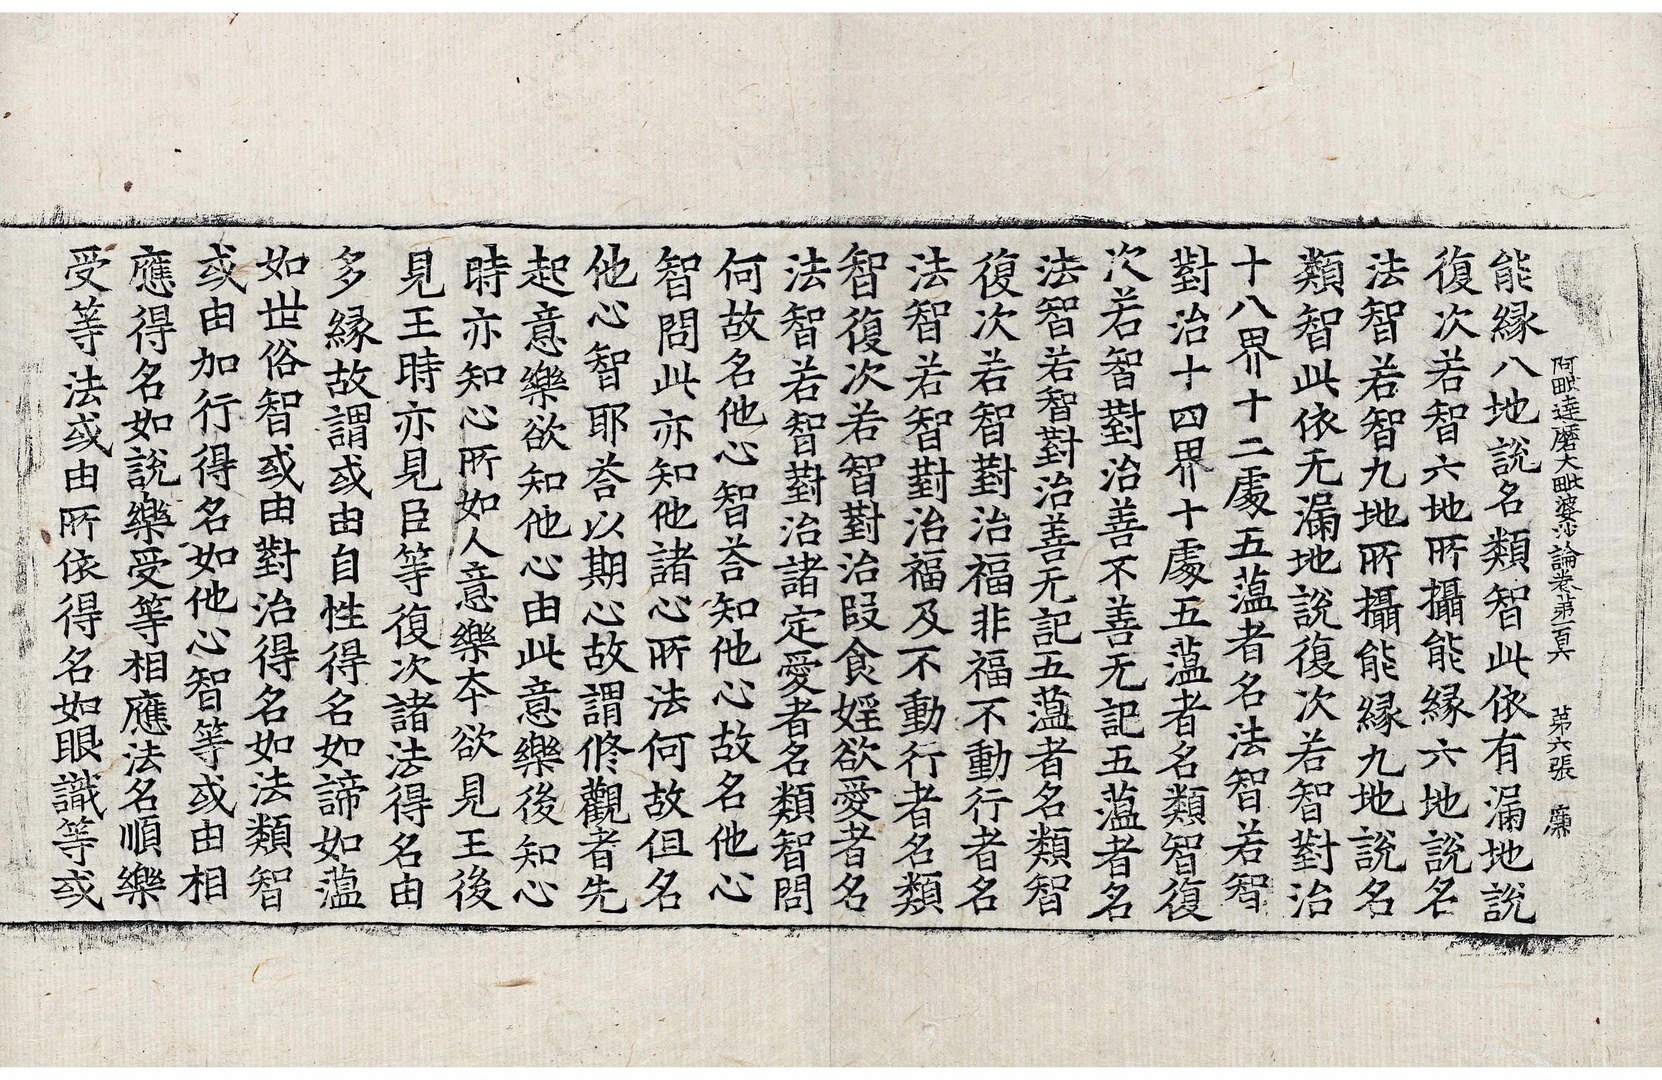 阿毗達磨大毗婆沙論卷第一百六　第六張　廉
能緣八地說名類智此依有漏地說
復次若智六地所攝能緣六地說名
法智若智九地所攝能緣九地說名
類智此依无漏地說復次若智對治
十八界十二處五蕰者名法智若智
對治十四界十處五蕰者名類智復
次若智對治善不善无記五蕰者名
法智若智對治善无記五蕰者名類智
復次若智對治福非福不動行者名
法智若智對治福及不動行者名類
智復次若智對治段食婬欲愛者名
法智若智對治諸定愛者名類智問
何故名他心智荅知他心故名他心
智問此亦知他諸心所法何故但名
他心智耶荅以期心故謂修觀者先
起意樂欲知他心由此意樂後知心
時亦知心所如人意樂夲欲見王後
見王時亦見臣等復次諸法得名由
多緣故謂或由自性得名如諦如蕰
如世俗智或由對治得名如法類智
或由加行得名如他心智等或由相
應得名如說樂受等相應法名順樂
受等法或由所依得名如眼識等或